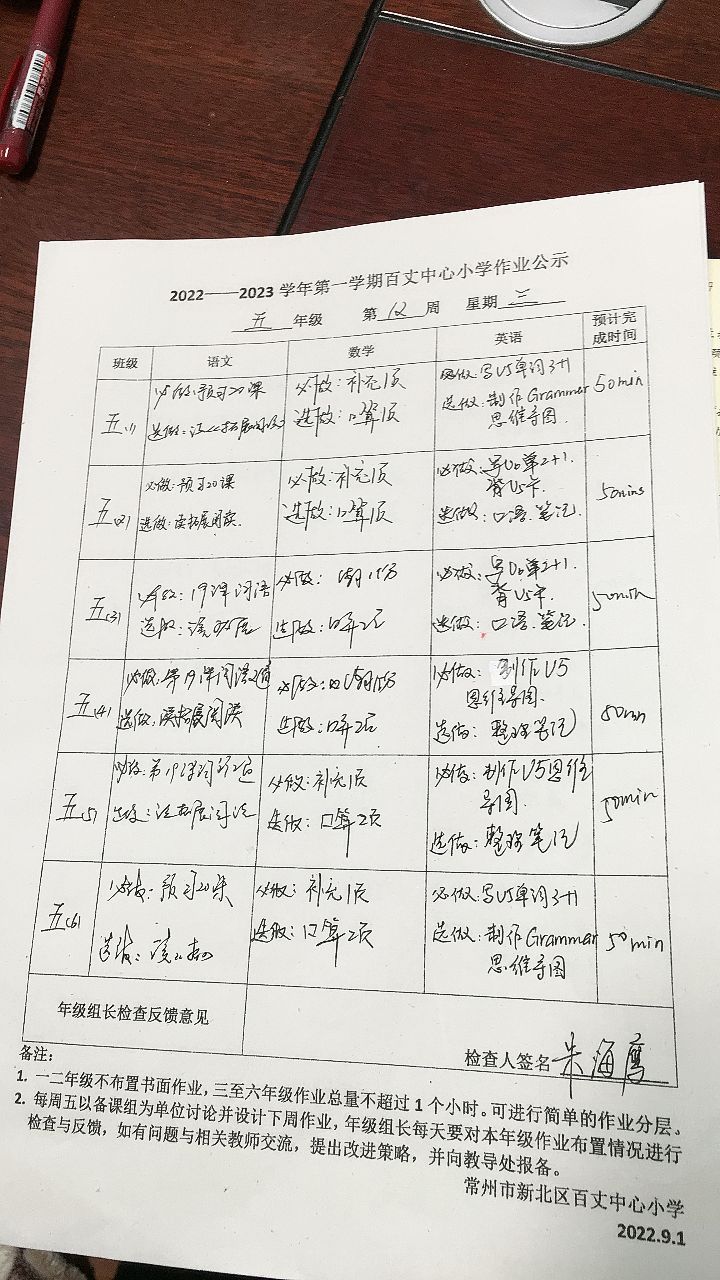 2022——2023 学年第一学期百丈中心小学作业公示
五 年级 第 12 周 星期 三
班级 语文 数学 英语 预计完成时间
五(1)
必做:预习20课
选做:读 拓展阅读
必做:补充1页
选做:口算1页
必做:写U5单词3+1
选做:制作Grammar
思维导图.
50min
五(2)
必做:预习20课
选做:读拓展阅读.
必做:补充1页
选做:口算1页
必做:写U6单2+1.
背U5卡.
选做:口语.笔记.
50mins
五(3)
必做:19课词语
选做:
必做:
选做:口算2页
必做:写U6单2+1.
背U5卡.
选做:口语.笔记.
50min
五(4)
必做:第19课词语2遍
选做:读拓展阅读
必做:
选做:口算2页
必做:制作U5
思维导图.
选做:整理笔记
50min
五(5)
必做:第19课词语2遍
选做:读拓展阅读
必做:补充1页
选做:口算2页
必做:制作U5思维
导图.
选做:整理笔记
50min
五(6)
必做:预习20课
选做:读
必做:补充1页
选做:口算2页
必做:写U5单词3+1
选做:制作Grammar
思维导图
50min
年级组长检查反馈意见
检查人签名 朱海鹰
备注:
1. 一二年级不布置书面作业,三至六年级作业总量不超过 1 个小时。可进行简单的作业分层。
2. 每周五以备课组为单位讨论并设计下周作业,年级组长每天要对本年级作业布置情况进行
检查与反馈,如有问题与相关教师交流,提出改进策略,并向教导处报备。
常州市新北区百丈中心小学
2022.9.1